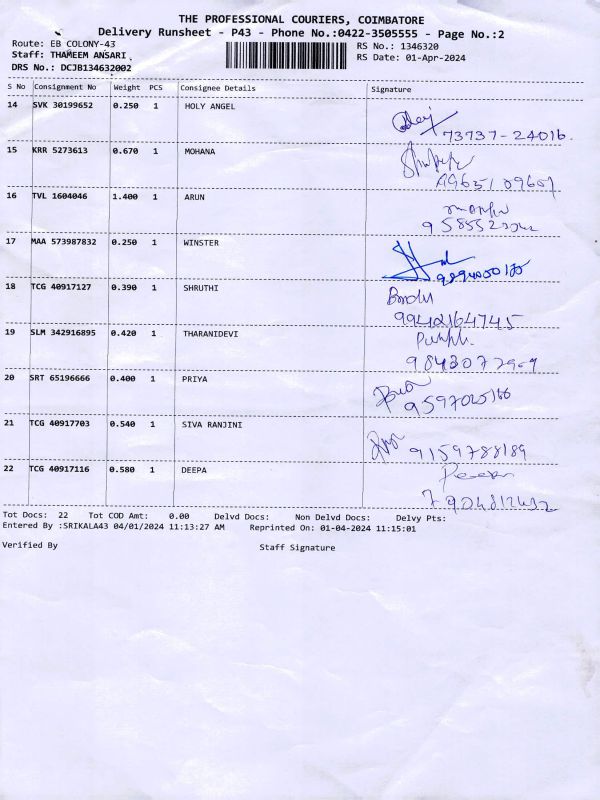 THE PROFESSIONAL COURIERS, COIMBATORE
Delivery Runsheet - P43 - Phone No.:0422-3505555 - Page No.:2
Route: EB COLONY-43 RS No.: 1346320
Staff: THAMEEM ANSARI. RS Date: 01-Apr-2024
DRS No.: DCJB134632002
S No Consignment No Weight PCS Consignee Details Signature
14 SVK 30199652 0.250 1 HOLY ANGEL
73737-24016.
15 KRR 5273613 0.670 1 MOHANA
16 TVL 1604046 1.400 1 ARUN
17 MAA 573987832 0.250 1 WINSTER
18 TCG 40917127 0.390 1 SHRUTHI
19 SLM 342916895 0.420 1 THARANIDEVI
20 SRT 65196666 0.400 1 PRIYA
21 TCG 40917703 0.540 1 SIVA RANJINI
9159788189
22 TCG 40917116 0.580 1 DEEPA
Tot Docs: 22 Tot COD Amt: 0.00 Delvd Docs: Non Delvd Docs: Delvy Pts:
Entered By :SRIKALA43 04/01/2024 11:13:27 AM Reprinted On: 01-04-2024 11:15:01
Verified By Staff Signature